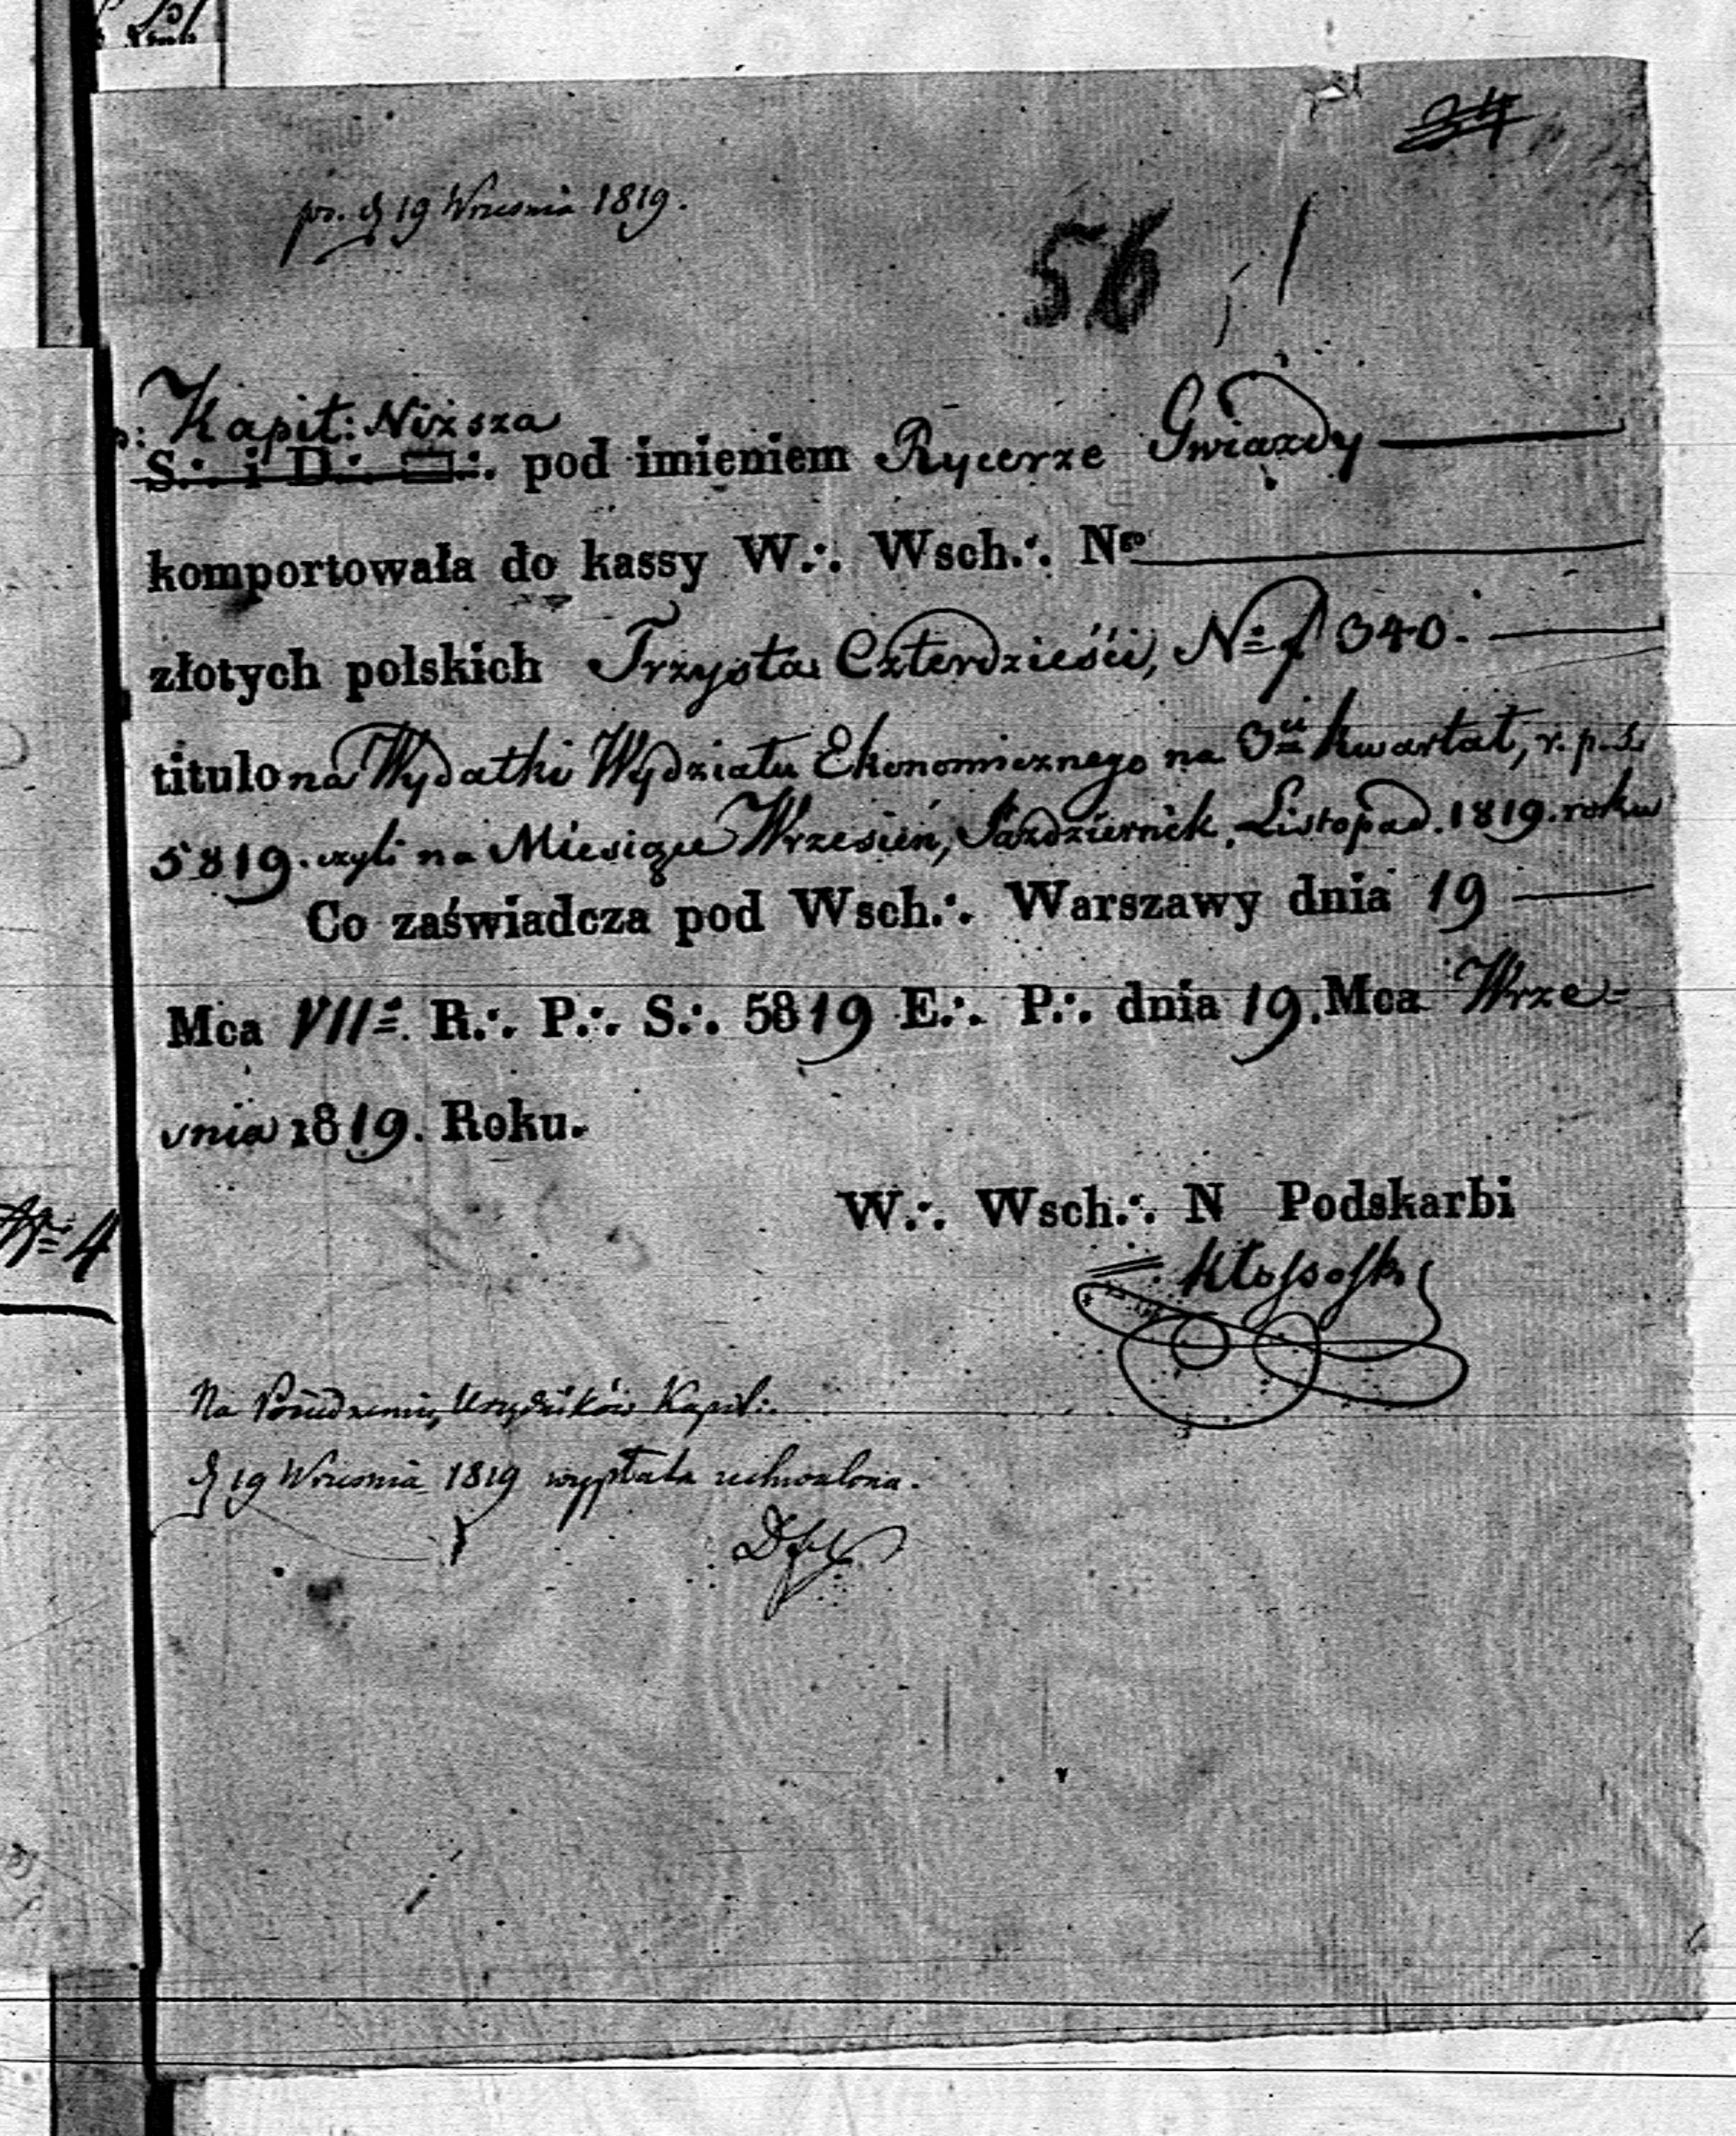 34
pr. d 19 Września 1819.
56
Kapit: Niższa
S∴ i D∴ □∴ pod imieniem Rycerze Gwiazdy
komportowała do kassy W∴ Wsch∴ Nº
złotych polskich Trzysta Czterdzieści, Nº f 340.
titulo na Wydatki Wydziału Ekonomicznego na 3ci Kwartał, r. p. s.
5819. czyli na Miesiące Wrzesień, Październik, Listopad. 1819. roku
Co zaświadcza pod Wsch∴ Warszawy dnia 19
Mca VIIº. R∴ P∴ S∴ 5819 E∴ P∴ dnia 19. Mca Wrze=
śnia 1819. Roku.
Nº 4
W∴ Wsch∴ N Podskarbi
Kłossosk
Na Posiedzeniu Urzędników Kapit:
d 19 Września 1819 wypłata uchwalona.